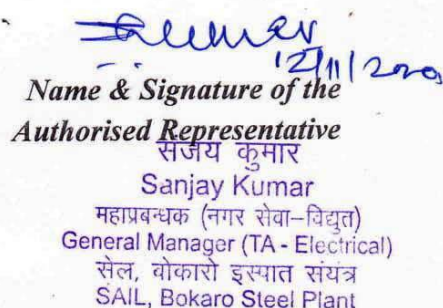 12/11/2020
Name & Signature of the
Authorised Representative
संजय कुमार
Sanjay Kumar
महाप्रबन्धक (नगर सेवा–विद्युत)
General Manager (TA - Electrical)
सेल, वोकारो इस्पात संयंत्र
SAIL, Bokaro Steel Plan